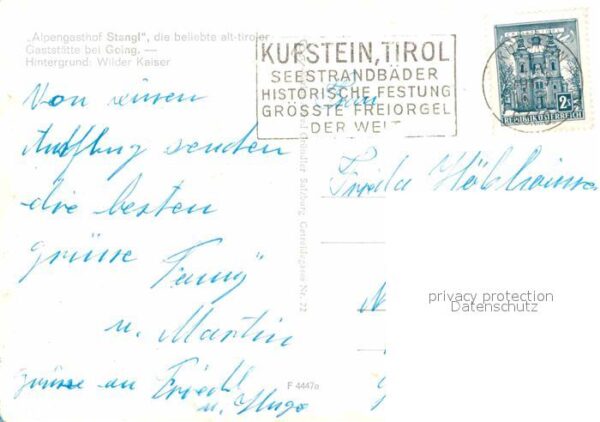 „Alpengasthof Stangl", die beliebte alt-tiroler
Gaststätte bei Going. —
Hintergrund: Wilder Kaiser
KUFSTEIN, TIROL
SEESTRANDBÄDER
HISTORISCHE FESTUNG
GRÖSSTE FREIORGEL
DER WELT
2S
REPUBLIK ÖSTERREICH
Von einem
Ausflug senden
die besten
Grüsse Fanny
u. Martin
Grüsse an Friedl
u. Hugo
Frau
Frieda
Salzburg, Getreidegasse Nr. 22
F 4447a
privacy protection
Datenschutz